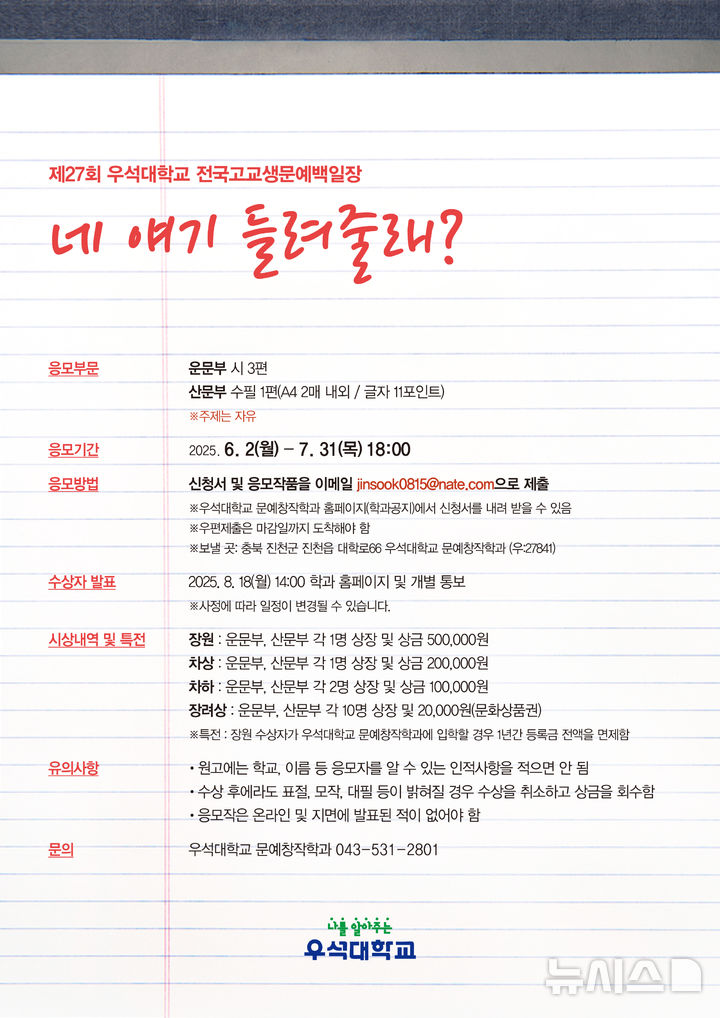 제27회 우석대학교 전국고교생문예백일장
네 얘기 들려줄래?
응모부문 운문부 시 3편
산문부 수필 1편(A4 2매 내외 / 글자 11포인트)
※주제는 자유
응모기간 2025. 6. 2(월) – 7. 31(목) 18:00
응모방법 신청서 및 응모작품을 이메일 jinsook0815@nate.com으로 제출
※우석대학교 문예창작학과 홈페이지(학과공지)에서 신청서를 내려 받을 수 있음
※우편제출은 마감일까지 도착해야 함
※보낼 곳: 충북 진천군 진천읍 대학로66 우석대학교 문예창작학과 (우:27841)
수상자 발표 2025. 8. 18(월) 14:00 학과 홈페이지 및 개별 통보
※사정에 따라 일정이 변경될 수 있습니다.
시상내역 및 특전 장원 : 운문부, 산문부 각 1명 상장 및 상금 500,000원
차상 : 운문부, 산문부 각 1명 상장 및 상금 200,000원
차하 : 운문부, 산문부 각 2명 상장 및 상금 100,000원
장려상 : 운문부, 산문부 각 10명 상장 및 20,000원(문화상품권)
※특전 : 장원 수상자가 우석대학교 문예창작학과에 입학할 경우 1년간 등록금 전액을 면제함
유의사항 • 원고에는 학교, 이름 등 응모자를 알 수 있는 인적사항을 적으면 안 됨
• 수상 후에라도 표절, 모작, 대필 등이 밝혀질 경우 수상을 취소하고 상금을 회수함
• 응모작은 온라인 및 지면에 발표된 적이 없어야 함
문의 우석대학교 문예창작학과 043-531-2801
나를 알아주는
우석대학교
뉴시스